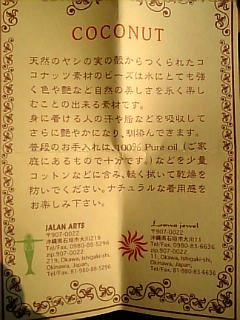 COCONUT
天然のヤシの実の殻からつくられたコ
コナッツ素材のビーズは水にとても強
く色や艶など自然の美しさを永く楽し
むことの出来る素材です。
身に着ける人の汗や脂などを吸収して
さらに艶やかになり、馴染んできます。
普段のお手入れは、100% Pure oil (ご家
庭にあるもので十分です。)などを少量
コットンなどに含み、軽く拭いて乾燥を
防いでください。ナチュラルな着用感を
お楽しみ下さい。
JALAN ARTS
〒907-0022
沖縄県石垣市大川219
Tel/Fax. 0980-88-5296
zip.907-0022
219, Okawa, Ishigaki-shi,
Okinawa, Japan,
Tel/Fax. 81-980-88-5296
jewel
〒907-0022
沖縄県石垣市大川11
Tel/Fax. 0980-83-6636
zip.907-0022
11, Okawa, Ishigaki-shi,
Okinawa, Japan,
Tel/Fax. 81-980-83-6636